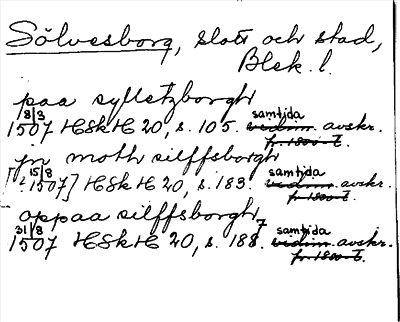 Sölvesborg, slott och stad,
Blek. l.
paa sylfetzborgh
18/3 samtida
1507 HSkH 20, s. 105. vidim. avskr.
fr. 1800-t.
in moth silffsborgh
15/8 samtida
[1507] HSkH 20, s. 183. vidim. avskr.
fr. 1800-t.
oppaa silffsborgh
31/8 samtida
1507 HSkH 20, s. 188. vidim. avskr.
fr. 1800-t.